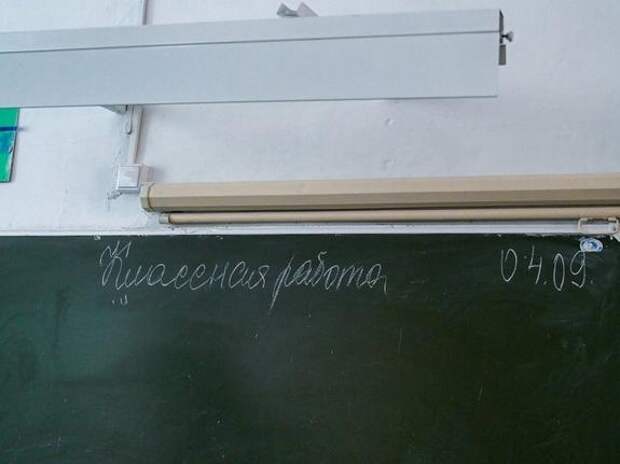 Классная работа 04.09.